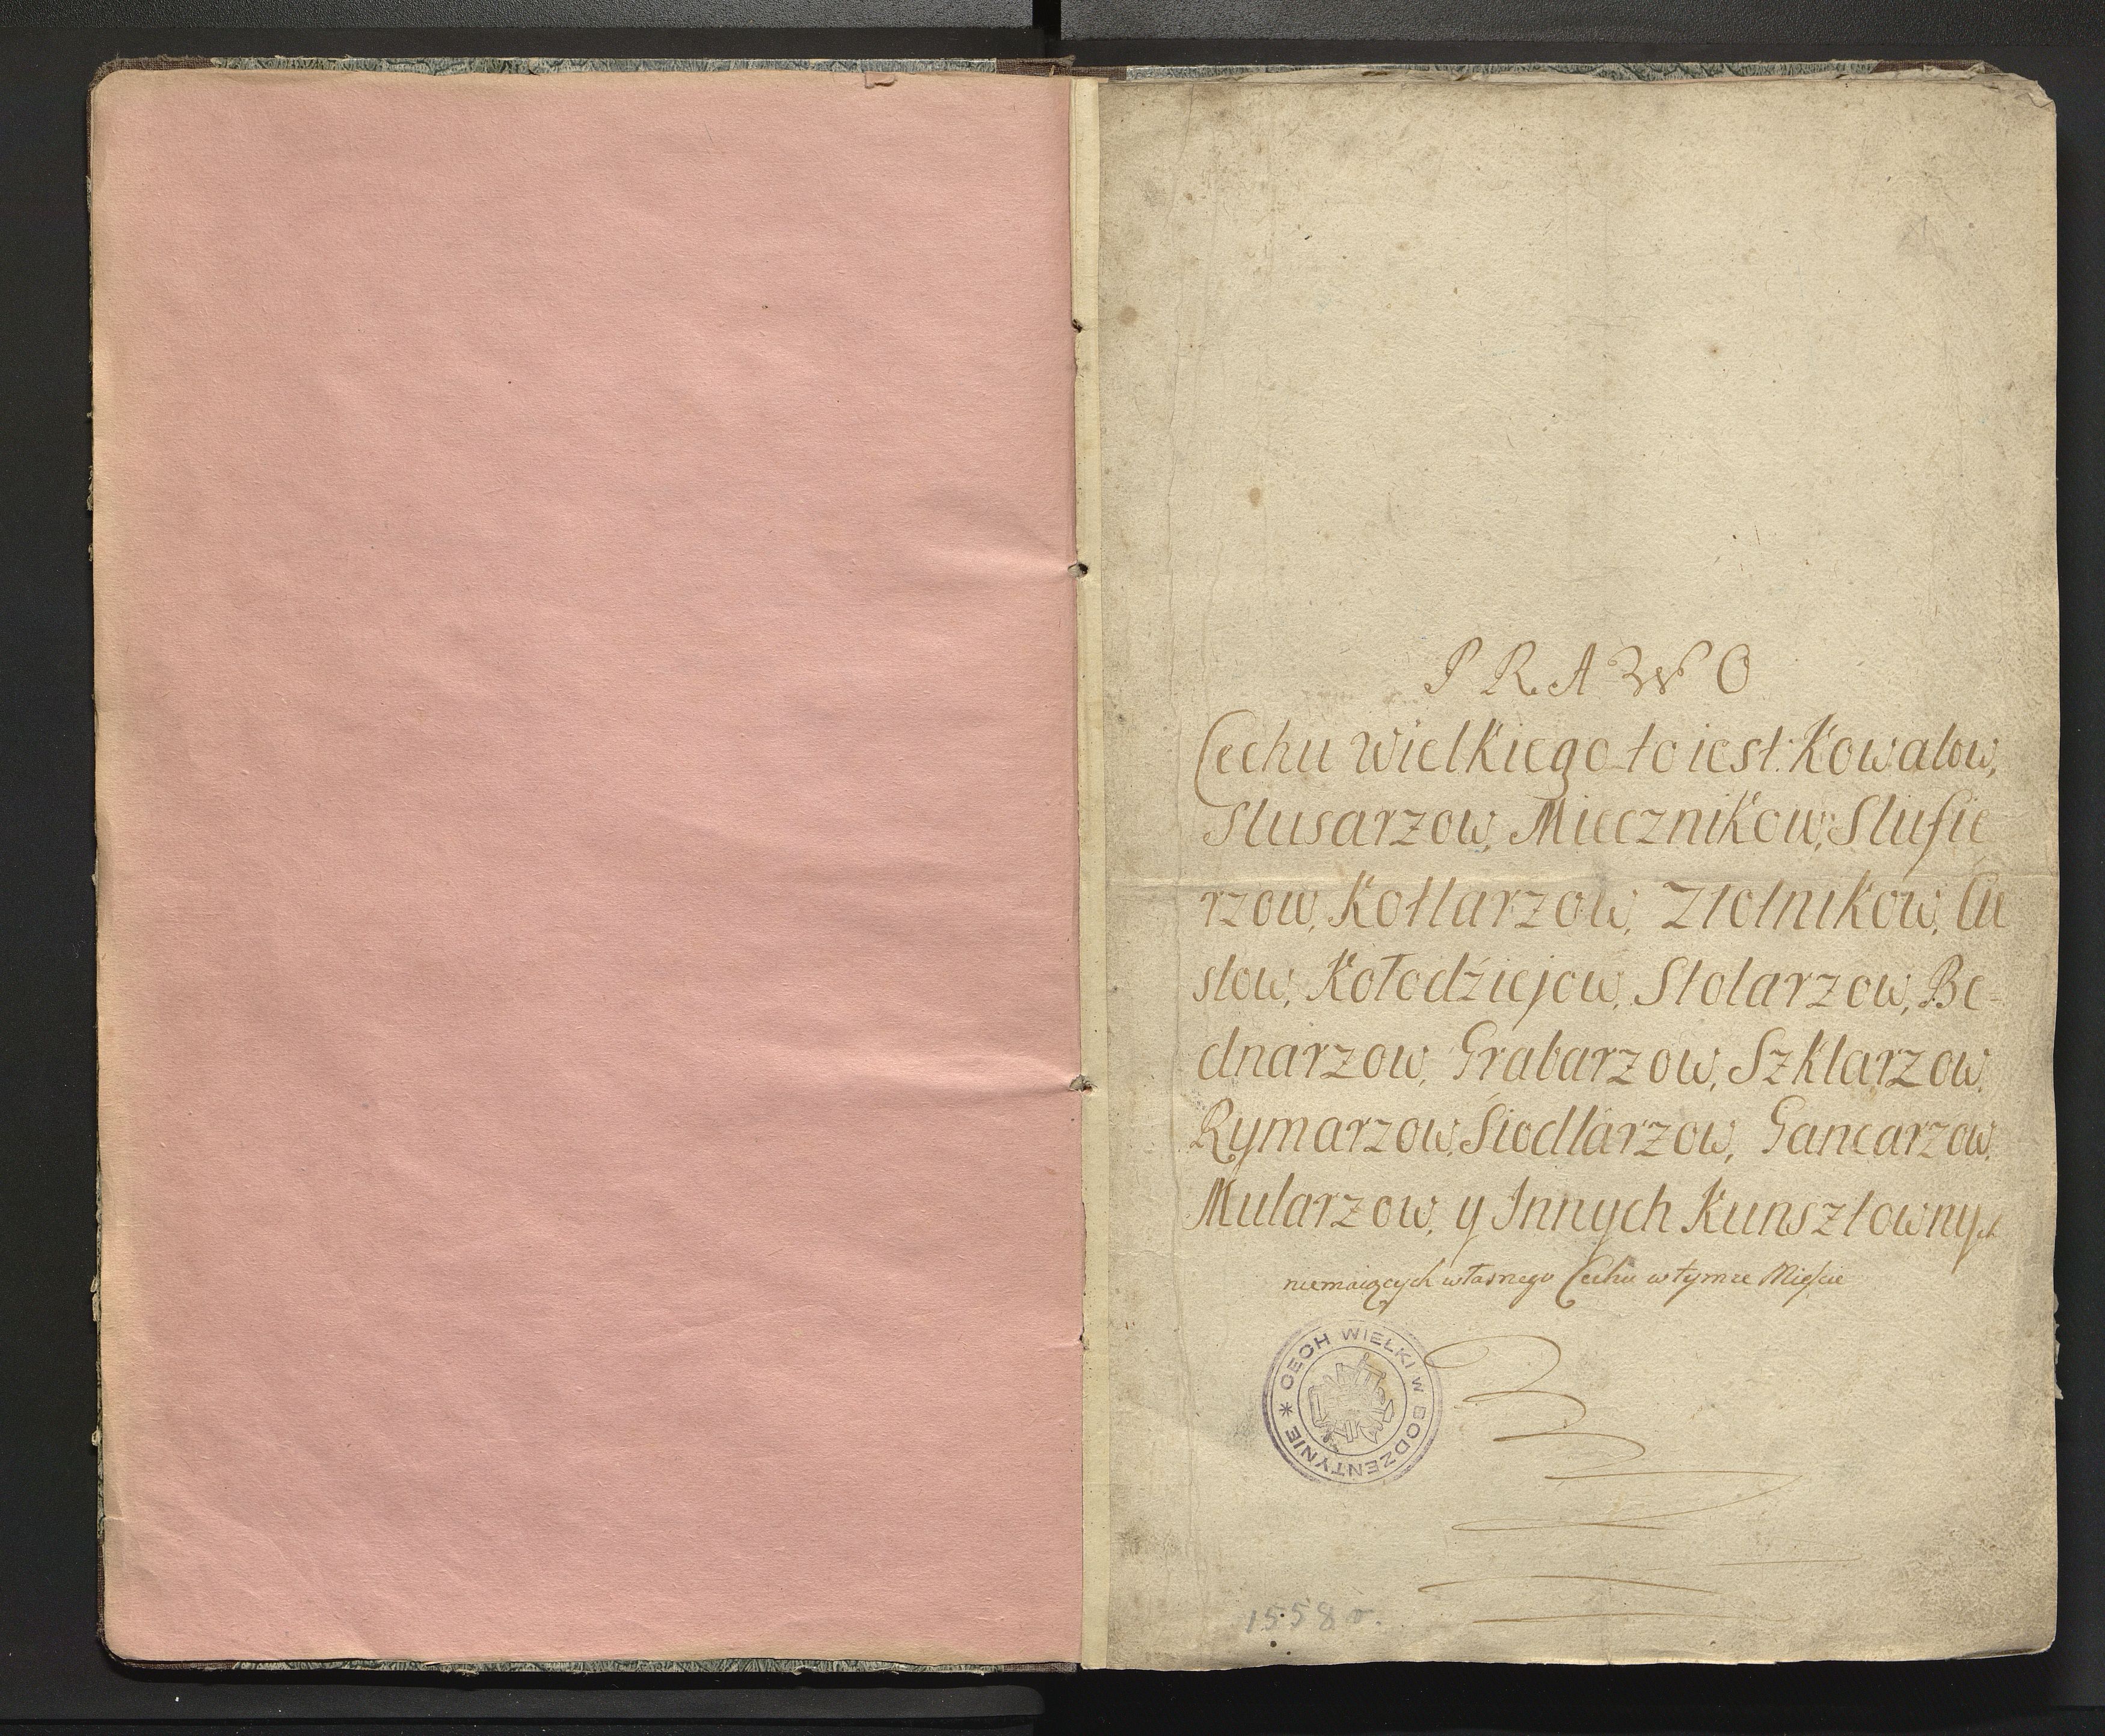 PRAWO
Cechu Wielkiego to iest: Kowalow,
Slusarzow, Miecznikow, Slusie
rzow, Kotlarzow, Złotnikow, Cie
slow, Kołodźiejow, Stolarzow, Be-
dnarzow, Grabarzow, Szklarzow,
Rymarzow, Siodlarzow, Gancarzow,
Mularzow, y Innych Kunsztownych
niemaiących własnego Cechu w tymze Mieście
CECH WIELKI W BODZENTYNIE
1558 r.